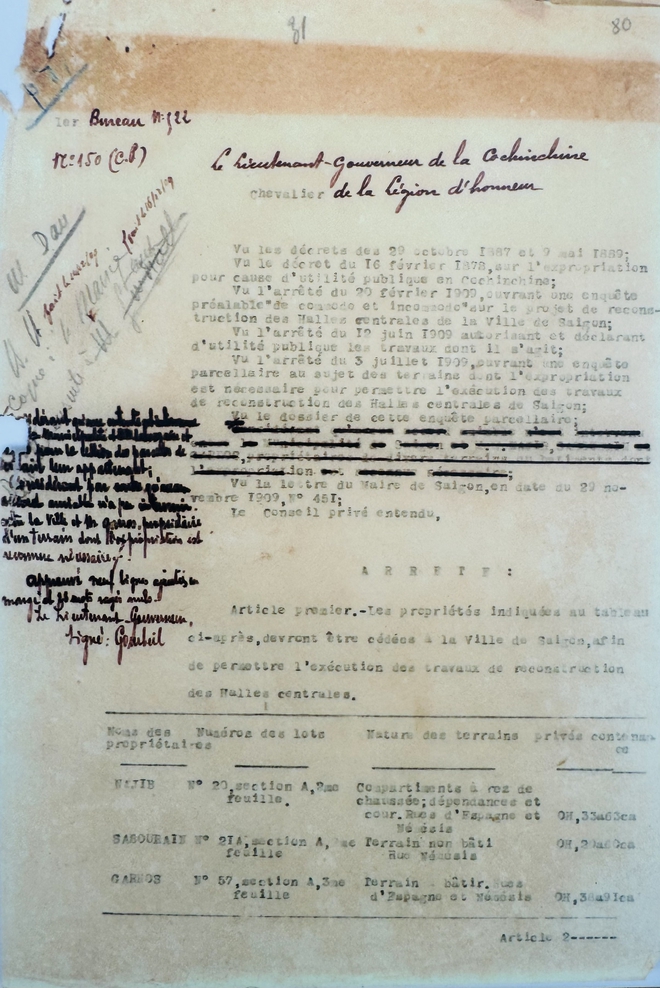 81
80
1er Bureau N° 522
N° 150 (C.P)
Le Lieutenant-Gouverneur de la Cochinchine
Chevalier de la Légion d'honneur
Vu les décrets des 29 octobre 1887 et 9 mai 1889;
Vu le décret du 16 février 1878, sur l'expropriation
pour cause d'utilité publique en Cochinchine;
Vu l'arrêté du 20 février 1909, ouvrant une enquête
préalable "de commodo et incommodo" sur le projet de recons-
truction des Halles centrales de la Ville de Saigon;
Vu l'arrêté du 1° juin 1909 autorisant et déclarant
d'utilité publique les travaux dont il s'agit;
Vu l'arrêté du 3 juillet 1909, ouvrant une enquête
parcellaire au sujet des terrains dont l'expropriation
est nécessaire pour permettre l'exécution des travaux
de reconstruction des Halles centrales de Saigon;
Vu le dossier de cette enquête parcellaire;
Vu la lettre du Maire de Saigon, en date du 29 no-
vembre 1909, N° 451;
Le Conseil privé entendu,
la Municipalité
pour la cession des parcelles de
leur appartenant;
Considérant par suite qu'aucun
accord amiable n'a pu intervenir
entre la Ville et propriétaire
d'un terrain dont l'expropriation est
reconnue nécessaire;-
approuvé neuf lignes ajoutées en
marge et mots rayés nuls.
Le Lieutenant-Gouverneur,
Signé: Gourbeil
ARRETE:
Article premier.-Les propriétés indiquées au tableau
ci-après, devront être cédées à la Ville de Saigon, afin
de permettre l'exécution des travaux de reconstruction
des Halles centrales.
Noms des Numéros des lots Nature des terrains privés contenan-
propriétaires ce
NAJIB N° 20, section A, 2me Compartiments à rez de
feuille. chaussée; dépendances et
cour. Rues d'Espagne et OH, 33a63ca
Némésis
SABOURAIN N° 21A, section A, 2me Terrain non bâti OH, 20a60ca
feuille Rue Némésis
GARROS N° 57, section A, 3me Terrain à bâtir. Rues
feuille d'Espagne et Némésis OH, 38a91ca
Article 2------